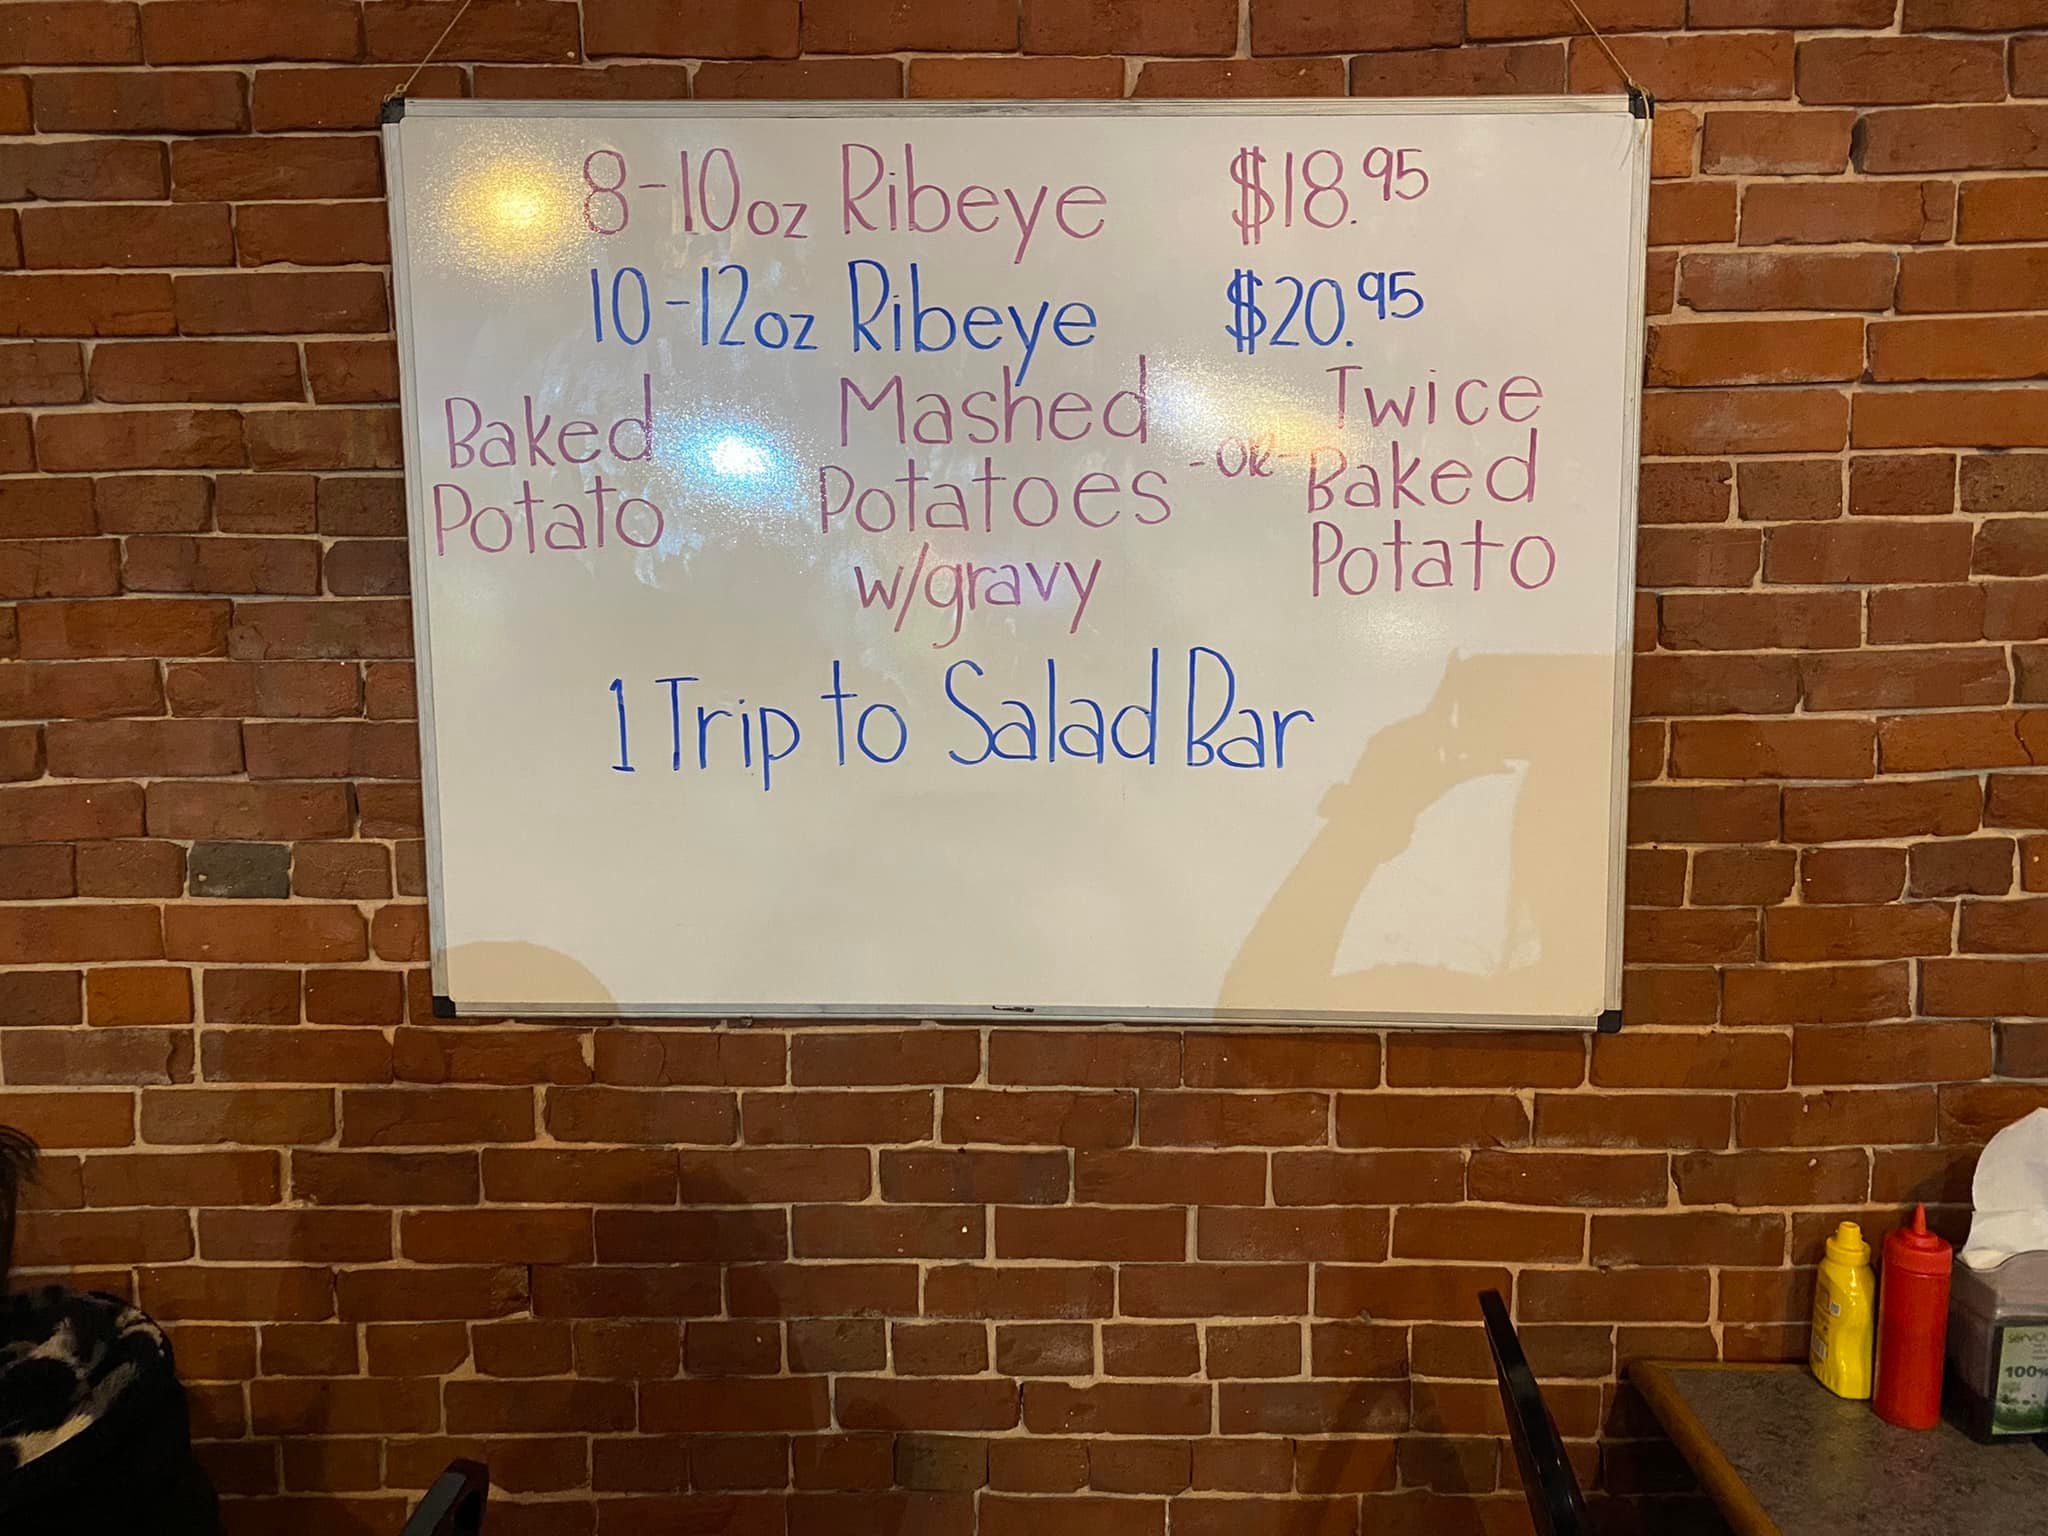 8-10oz Ribeye $18.95
10-12oz Ribeye $20.95
Baked
Potato
Mashed
Potatoes
w/gravy
-OR-
Twice
Baked
Potato
1 Trip to Salad Bar
100%